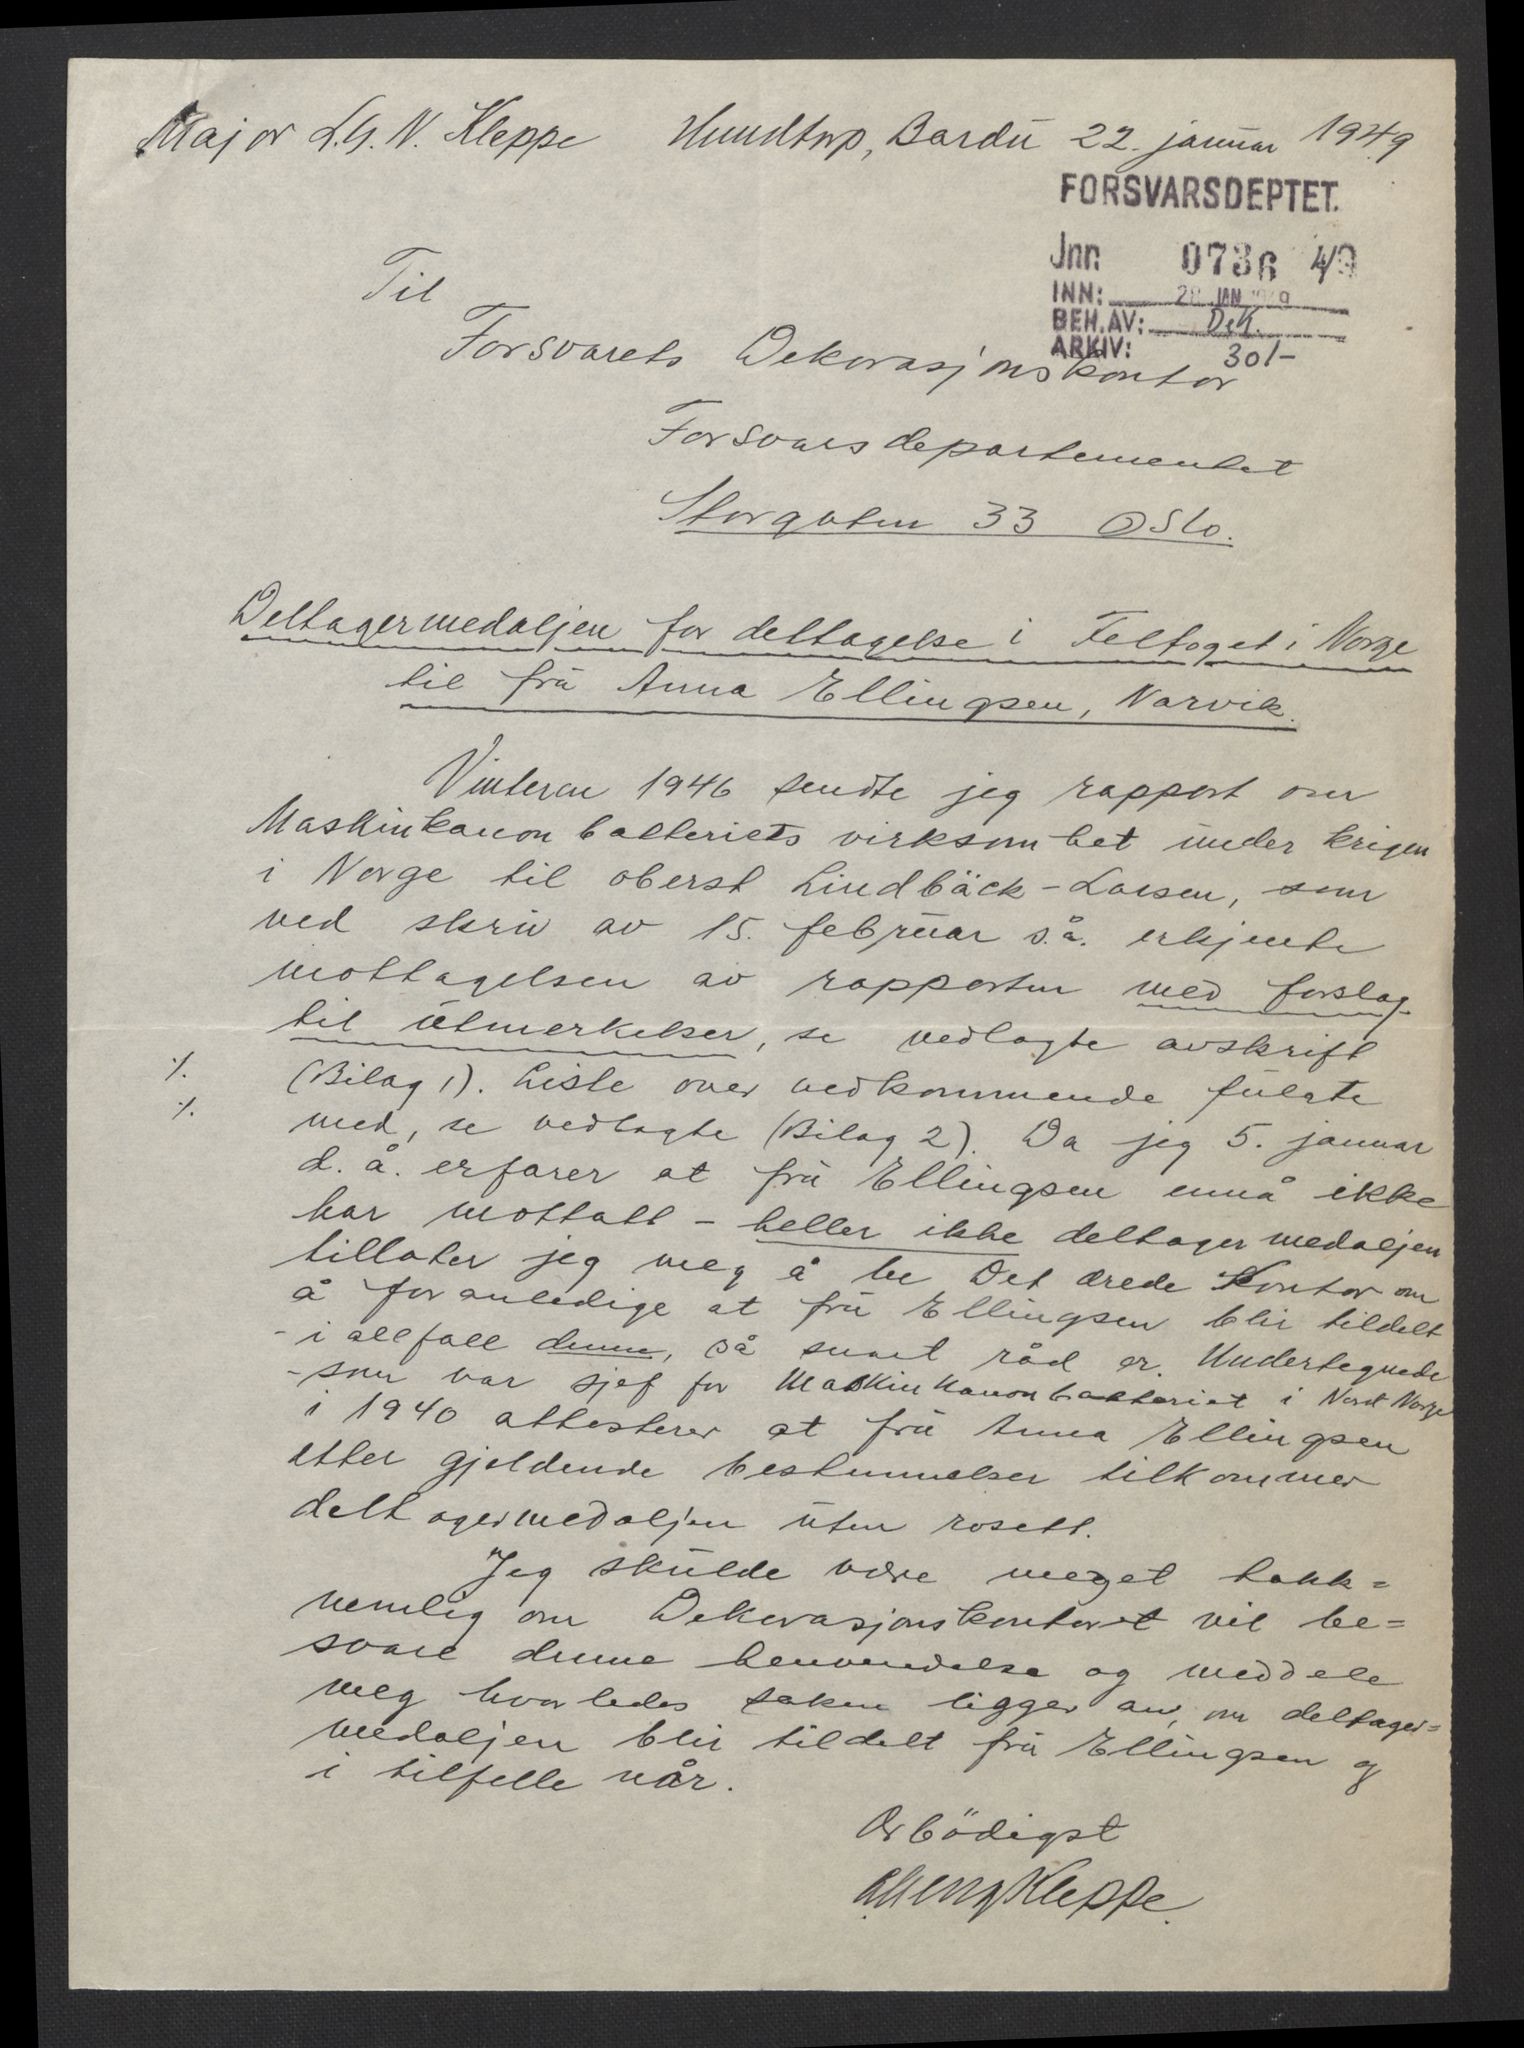 Major L.G.N. Kleppe Hundtorp, Bardu 22. januar 1949
FORSVARSDEPTET.
Jnr. 0736 49
INN: 28 JAN 1949
BEH. AV: Dek.
ARKIV: 301-
Til
Forsvarets Dekorasjonskontor
Forsvarsdepartementet
Storgaten 33 Oslo.
Deltagermedaljen for deltagelse i Feltoget i Norge
til fru Anna Ellingsen, Narvik.
Vinteren 1946 sendte jeg rapport om
Maskinkanonbatteriets virksomhet under krigen
i Norge til oberst Lindbäck-Larsen, som
ved skriv av 15. februar s.å. erkjente
mottagelsen av rapporten med forslag
til utmerkelser, se vedlagte avskrift
./. (Bilag 1). Liste over vedkommende fulgte
./. med, se vedlagte (Bilag 2). Da jeg 5. januar
d.å. erfarer at fru Ellingsen ennå ikke
har mottatt - heller ikke deltagermedaljen
tillater jeg meg å be Det ærede Kontor om
å foranledige at fru Ellingsen blir tildelt
- i allfall denne, så snart råd er. Undertegnede
- som var sjef for Maskinkanonbatteriet i Nord Norge
i 1940 attesterer at fru Anna Ellingsen
etter gjeldende bestemmelser tilkommer
deltagermedaljen uten rosett.
Jeg skulde være meget takk=
nemlig om Dekorasjonskontoret vil be=
svare denne henvendelse og meddele
meg hvorledes saken ligger an, om deltager=
medaljen blir tildelt fru Ellingsen og
i tilfelle når.
Ærbödigst
Kleppe.